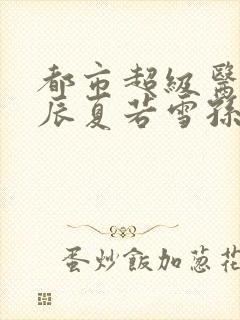 都市超级医
辰夏若雪孫
蛋炒飯加葱花